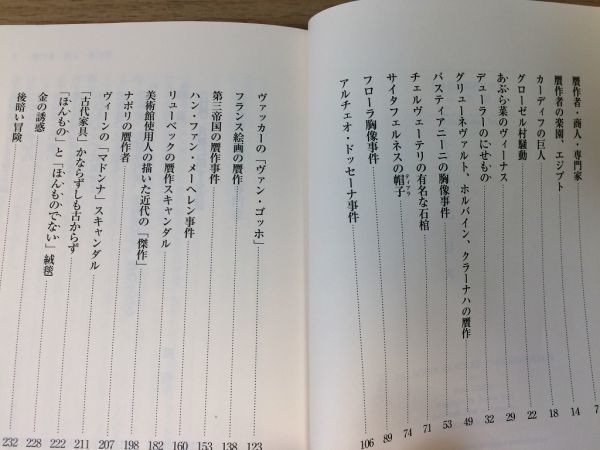 贋作者・商人・専門家 7
贋作者の楽園、エジプト 14
カーディフの巨人 18
グローゼル村騒動 22
あぶら菜のヴィーナス 29
デューラーのにせもの 32
グリューネヴァルト、ホルバイン、クラーナハの贋作 49
パスティアニーニの胸像事件 53
チェルヴェーテリの有名な石棺 71
サイタフェルネスの帽子 74
フローラ胸像事件 89
アルチェオ・ドッセーナ事件 106
ヴァッカーの「ヴァン・ゴッホ」 123
フランス絵画の贋作 138
第三帝国の贋作事件 153
ハン・ファン・メーヘレン事件 160
リューベックの贋作スキャンダル 182
美術館使用人の描いた近代の「傑作」 198
ナポリの贋作者 207
ヴィーンの「マドンナ」スキャンダル 211
「古代家具」かならずしも古からず 222
「ほんもの」と「ほんものでない」絨毯 228
金の誘惑 232
後暗い冒険